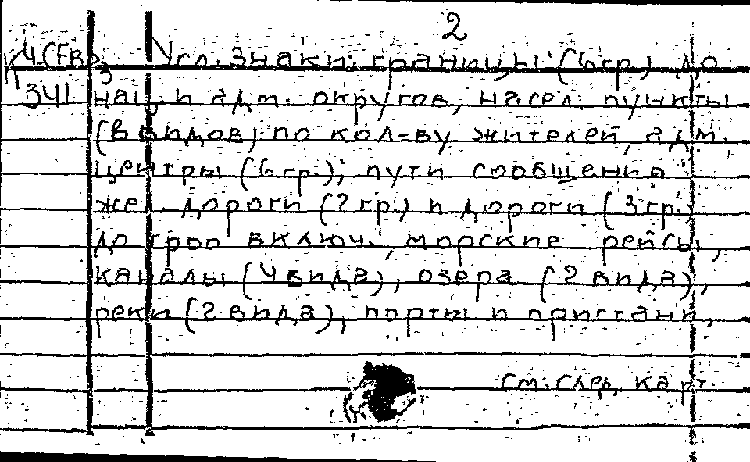 2
К Ч.СЕВ. Усл. знаки: границы (6 гр.) до
3
341 нац. и адм. округов, насел. пункты
(8 видов) по кол-ву жителей, адм.
центры (6 гр.); пути сообщения:
жел. дороги (2 гр.) и дороги (3 гр.)
до троп включ., морские рейсы,
каналы (4 вида), озера (2 вида),
реки (2 вида), порты и пристани,
См. след. карт.